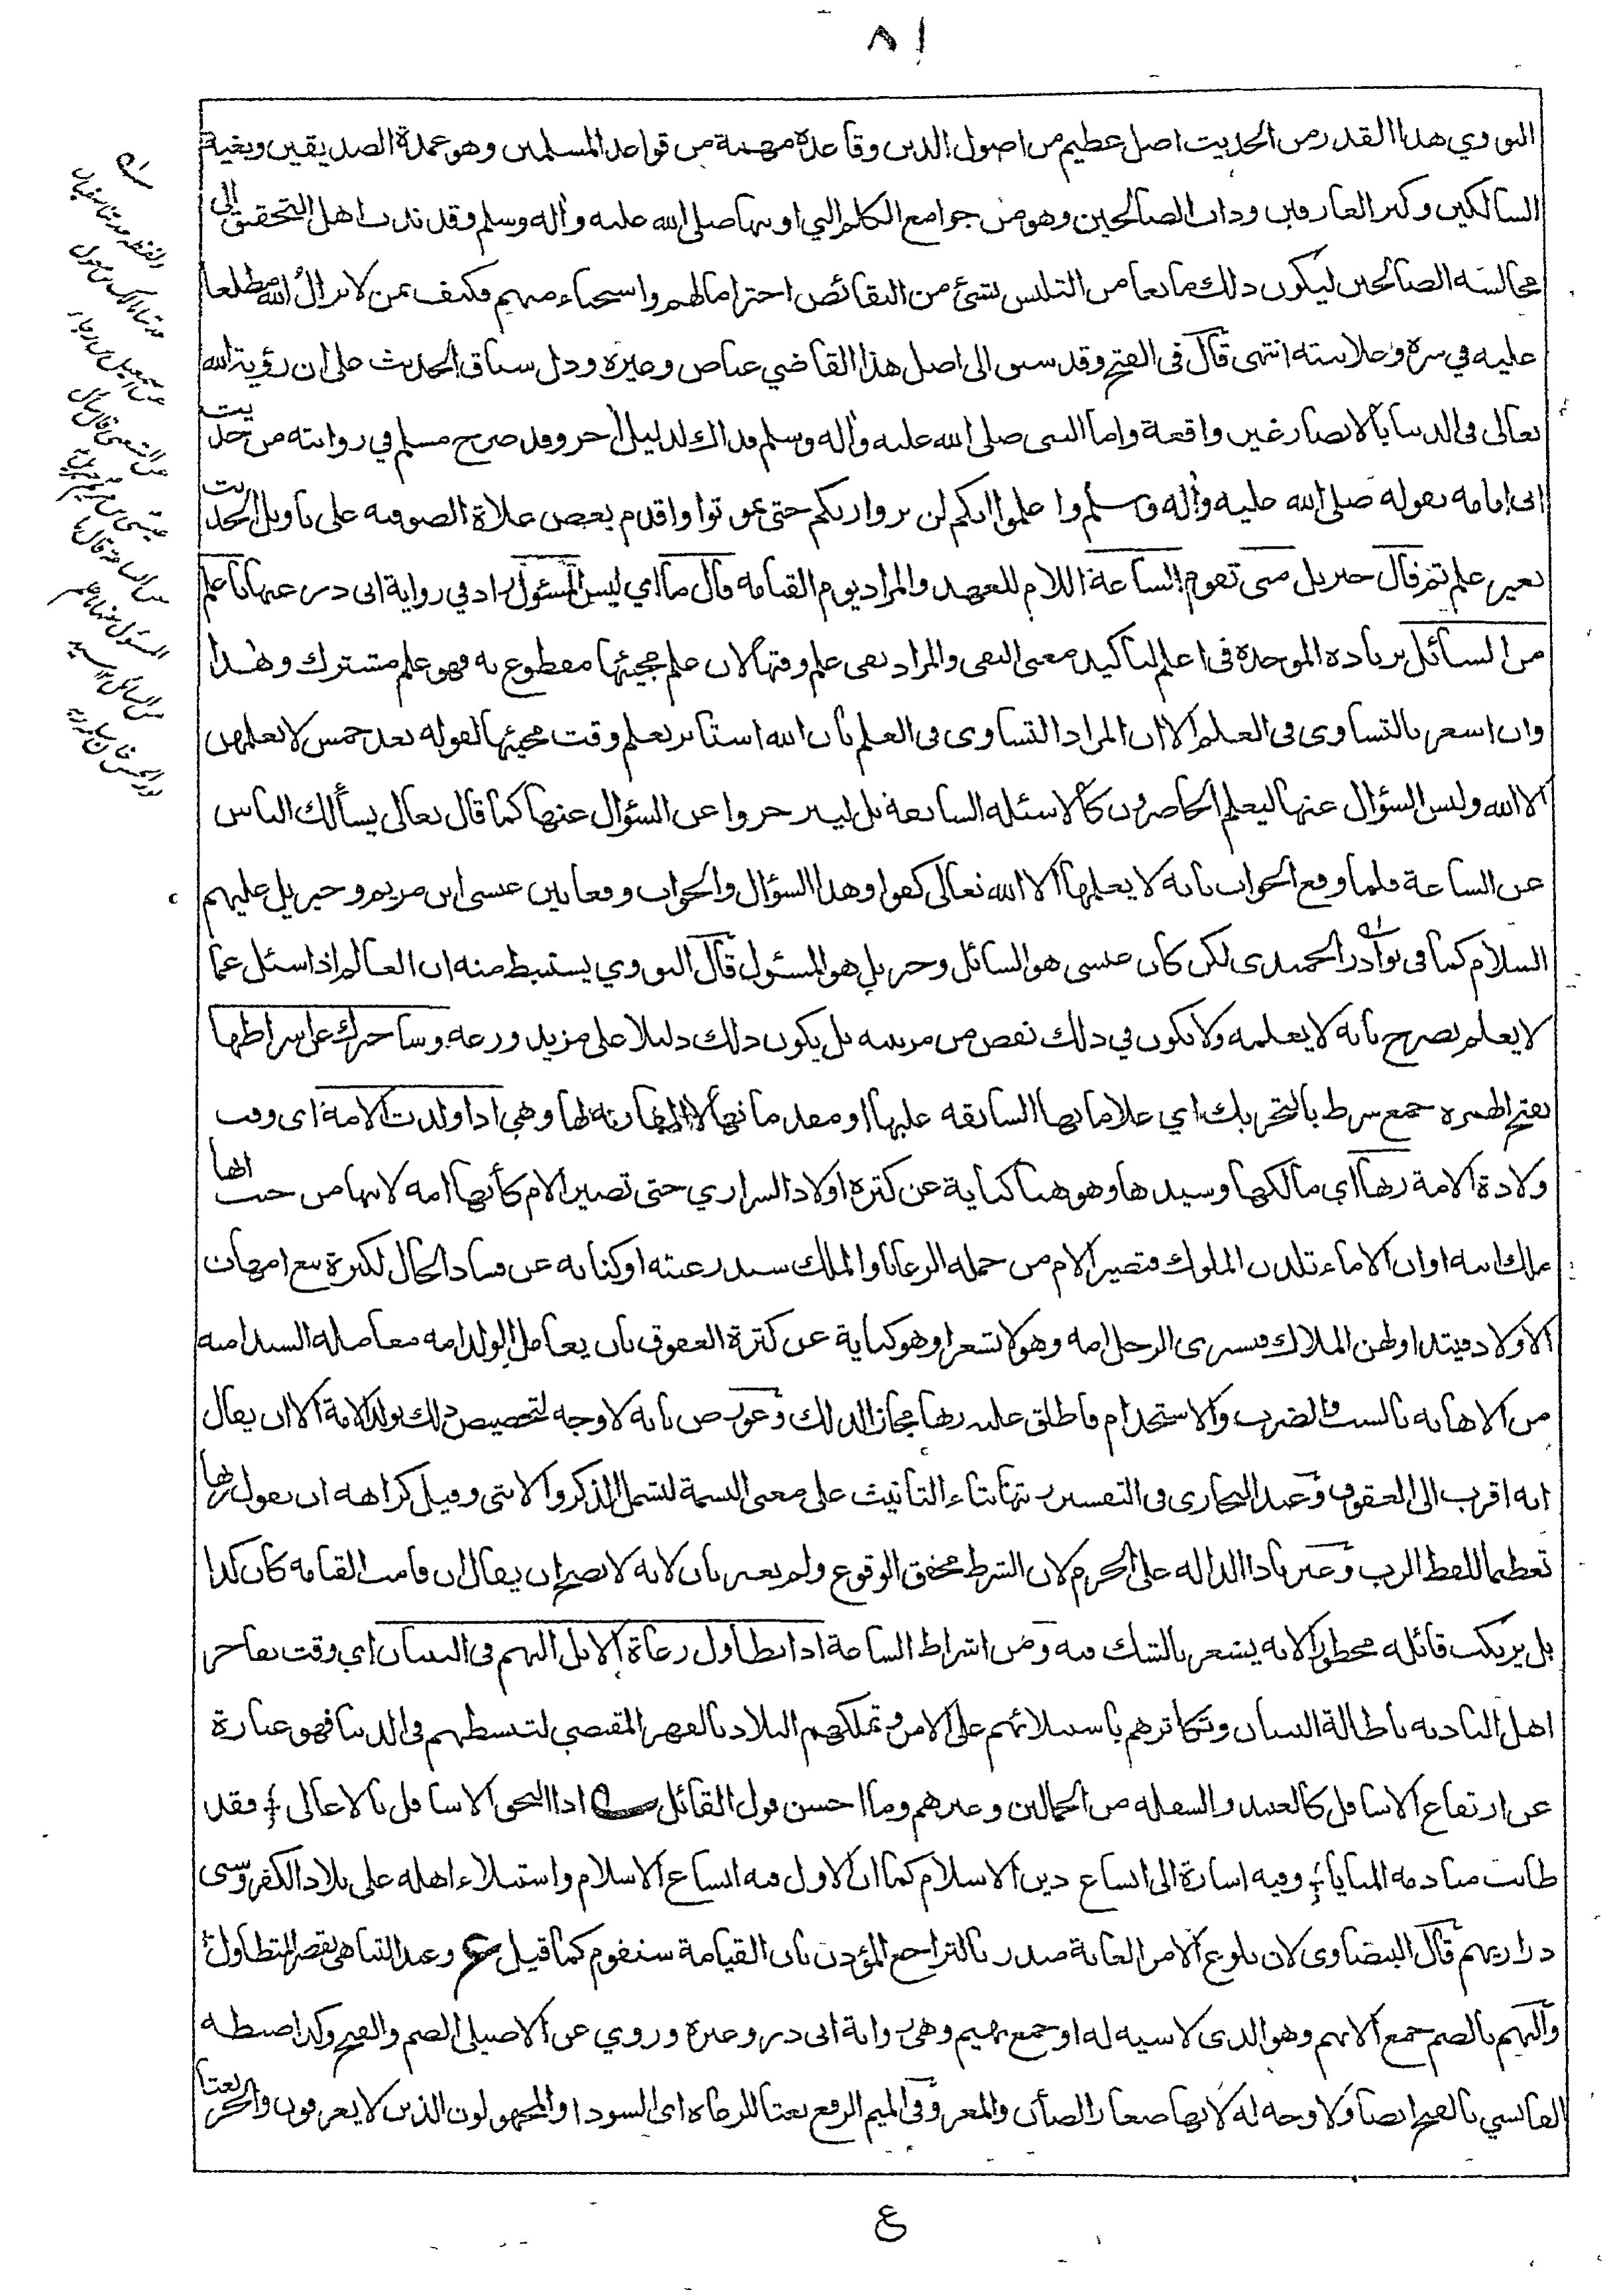 ٨١
النووي هذا القدر من الحديث اصل عظيم من اصول الدين وقاعدة مهمة من قواعد المسلمين وهو عمدة الصديقين وبغية
السالكين وكنز العارفين وداب الصالحين وهو من جوامع الكلم التي اوتيها صلى الله عليه وأله وسلم وقد ندب اهل التحقيق الى
مجالسة الصالحين ليكون ذلك مانعا من التلبس بشئ من النقائص احتراما لهم واستحياء منهم فكيف بمن لا يزال الله مطلعا
عليه في سره وعلانيته انتهى قال فى الفتح وقد سبق الى اصل هذا القاضي عياض وغيره ودل سياق الحديث على ان رؤية الله
تعالى في الدنيا بالابصار غير واقعة واما النبي صلى الله عليه وأله وسلم فذاك لدليل أخر وقد صرح مسلم في روايته من حديث
ابى امامه بقوله صلى الله عليه وأله وسلم واعلموا انكم لن تروا ربكم حتى تموتوا واقدم بعض غلاة الصوفيه على تاويل الحديث
بغير علم ثم قال جبريل متى تقوم الساعة اللام للعهد والمراد يوم القيامه قال ما اي ليس المسئول زاد في رواية ابى ذر عنها باعلم
من السائل بزيادة الموحدة فى اعلم لتاكيد معنى النفى والمراد نفى علم وقتها لان علم مجيئها مقطوع به فهو علم مشترك وهذا
وان اشعر بالتساوى فى العلم الا ان المراد التساوى فى العلم بان الله استاثر بعلم وقت مجيئها لقوله بعد خمس لا يعلمهن
الا الله وليس السؤال عنها ليعلم الحاضرون كالاسئله السابقة بل لينزجروا عن السؤال عنها كما قال تعالى يسألك الناس
عن الساعة فلما وقع الجواب بانه لا يعلمها الا الله تعالى كفوا وهذا السؤال والجواب وقعا بين عيسى ابن مريم وجبريل عليهم
السلام كما فى نوادر الحميدى لكن كان عيسى هو السائل وجبريل هو المسئول قال النووي يستنبط منه ان العالم اذا سئل عما
لا يعلم يصرح بانه لا يعلمه ولا يكون في ذلك نقص من مرتبته بل يكون ذلك دليلا على مزيد ورعه وساخبرك عن اشراطها
بفتح الهمزه جمع شرط بالتحريك اي علاماتها السابقه عليها او مقدماتها لا المقارنه لها وهي اذا ولدت الامة اى وقت
ولادة الامة ربها اي مالكها وسيدها وهو هنا كناية عن كثرة اولاد السراري حتى تصير الام كأنها امه لابنها من حيث انها
ملك ابيه او ان الاماء تلدن الملوك فتصير الام من جملة الرعايا والملك سيد رعيته او كنايه عن فساد الحال لكثرة بيع امهات
الاولاد فيتداولهن الملاك فيشترى الرجل امه وهو لا يشعر او هو كناية عن كثرة العقوق بان يعامل الولد امه معاملة السيد امته
من الاهانه بالسب والضرب والاستخدام فاطلق عليه ربها مجازا لذلك وعورض بانه لا وجه لتخصيص ذلك بولد الامة الا ان يقال
انه اقرب الى العقوق وعند البخارى فى التفسير ربتها بتاء التانيث على معنى النسمة لتشمل الذكر والانثى وقيل كراهة ان يقول ربها
تعظيما للفظ الرب وعبر باذا الداله على الجزم لان الشرط محقق الوقوع ولم يعبر بان لانه لا يصح ان يقال ان قامت القيامه كان كذا
بل يرتكب قائله محظورا لانه يشعر بالشك فيه ومن اشراط الساعة اذا تطاول رعاة الابل البهم فى البنيان اي وقت تفاخر
اهل الباديه باطالة البنيان وتكاثرهم باستيلائهم على الامر وتملكهم البلاد بالقهر المقتضي لتبسطهم فى الدنيا فهو عبارة
عن ارتفاع الاسافل كالعبيد والسفله من الجمالين وغيرهم وما احسن قول القائل اذا التحق الاسافل بالاعالى فقد
طابت منادمة المنايا وفيه اشارة الى اتساع دين الاسلام كما ان الاول فيه اتساع الاسلام واستيلاء اهله على بلاد الكفر وسبى
ذراريهم قال البيضاوى لان بلوغ الامر الغاية منذر بالتراجع المؤذن بان القيامة ستقوم كما قيل وعند التناهى يقصر المتطاول
والبهم بالضم جمع الابهم وهو الذى لا شيه له او جمع بهيم وهى رواية ابى ذر وغيره وروي عن الاصيلى الضم والفتح وكذا ضبطه
القابسي بالفتح ايضا ولا وجه له لانها صغار الضأن والمعز وفى الميم الرفع نعتا للرعاة اى السود او المجهولون الذين لا يعرفون والجر نعتا
ع